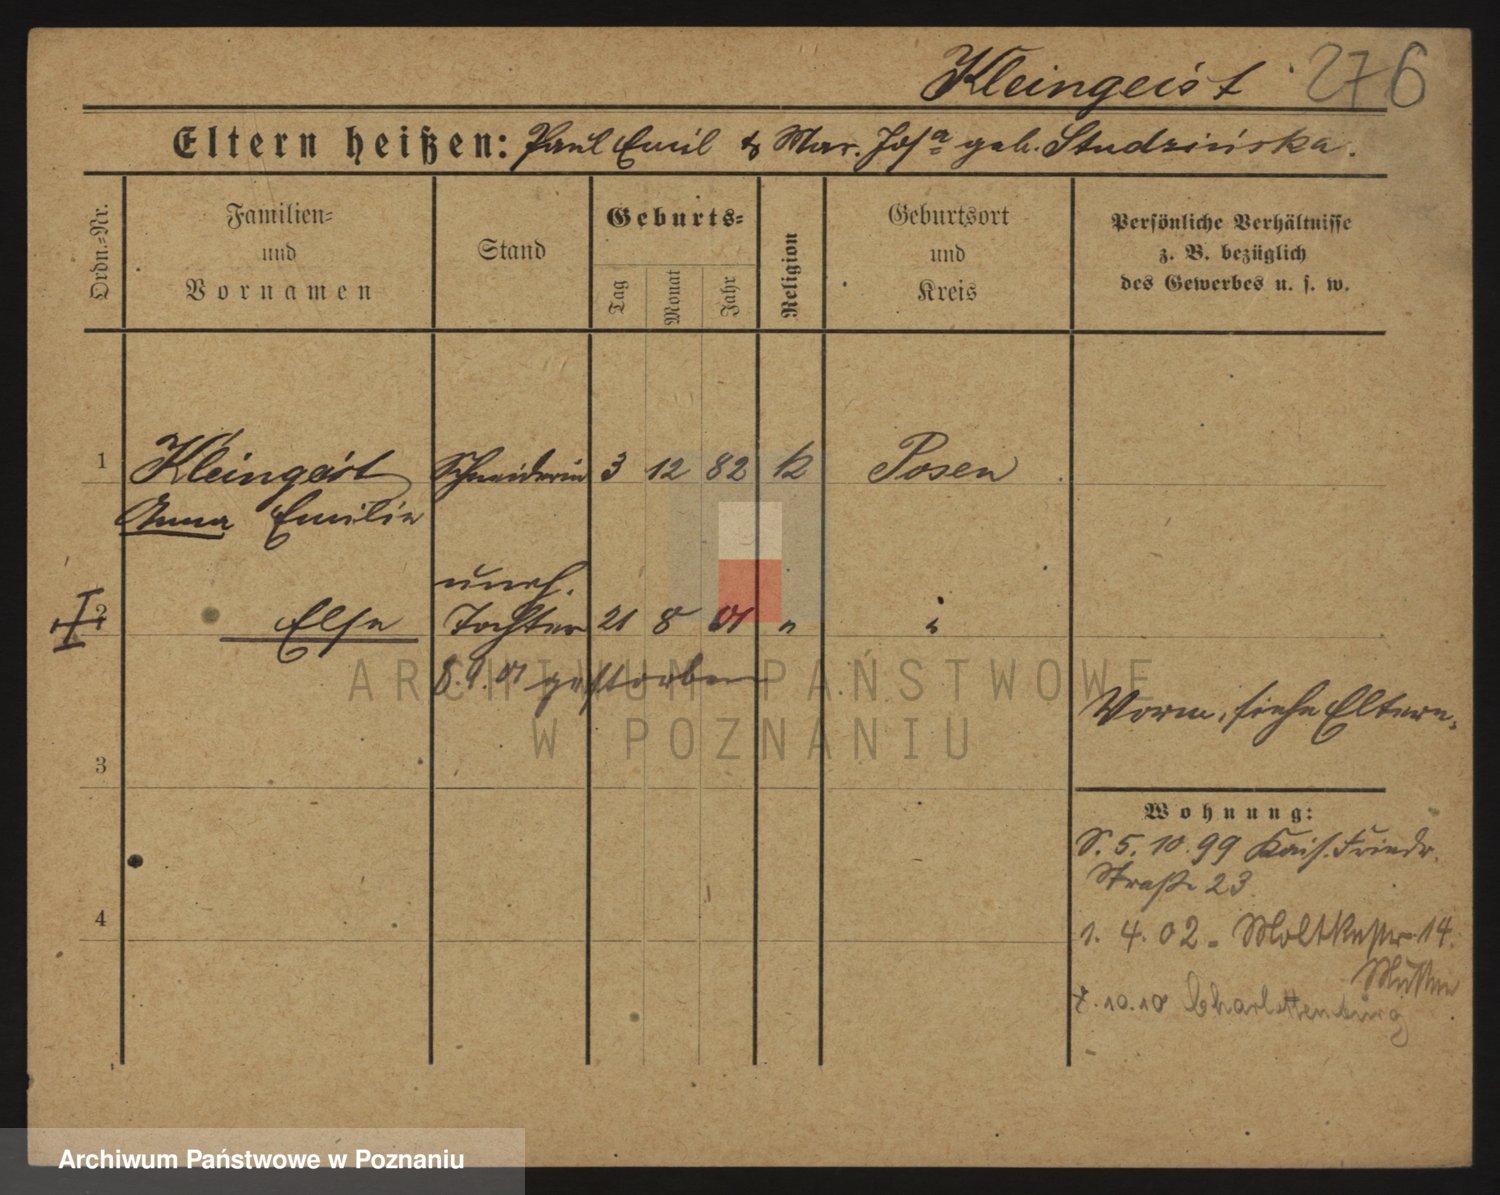 Kleingeist 276
Eltern heißen: Paul Emil & Mar. Jos^a geb. Studzińska.
Ordn.=Nr.
Familien=
und
Vornamen
Stand
Geburts=
Tag
Monat
Jahr
Religion
Geburtsort
und
Kreis
Persönliche Verhältnisse
z. B. bezüglich
des Gewerbes u. s. w.
1 Kleingeist Schneiderin 3 12 82 k Posen
Anna Emilie
uneh.
2 Else Tochter 21 8 01 " "
8.9.01 gestorben
Vorm. siehe Eltern.
3
Wohnung:
S. 5. 10. 99 Kais. Friedr.
Straße 23
4
1. 4. 02 - Moltkestr. 14.
Mutter
7.10.10 Charlottenburg
ARCHIWUM PAŃSTWOWE
W POZNANIU
Archiwum Państwowe w Poznaniu